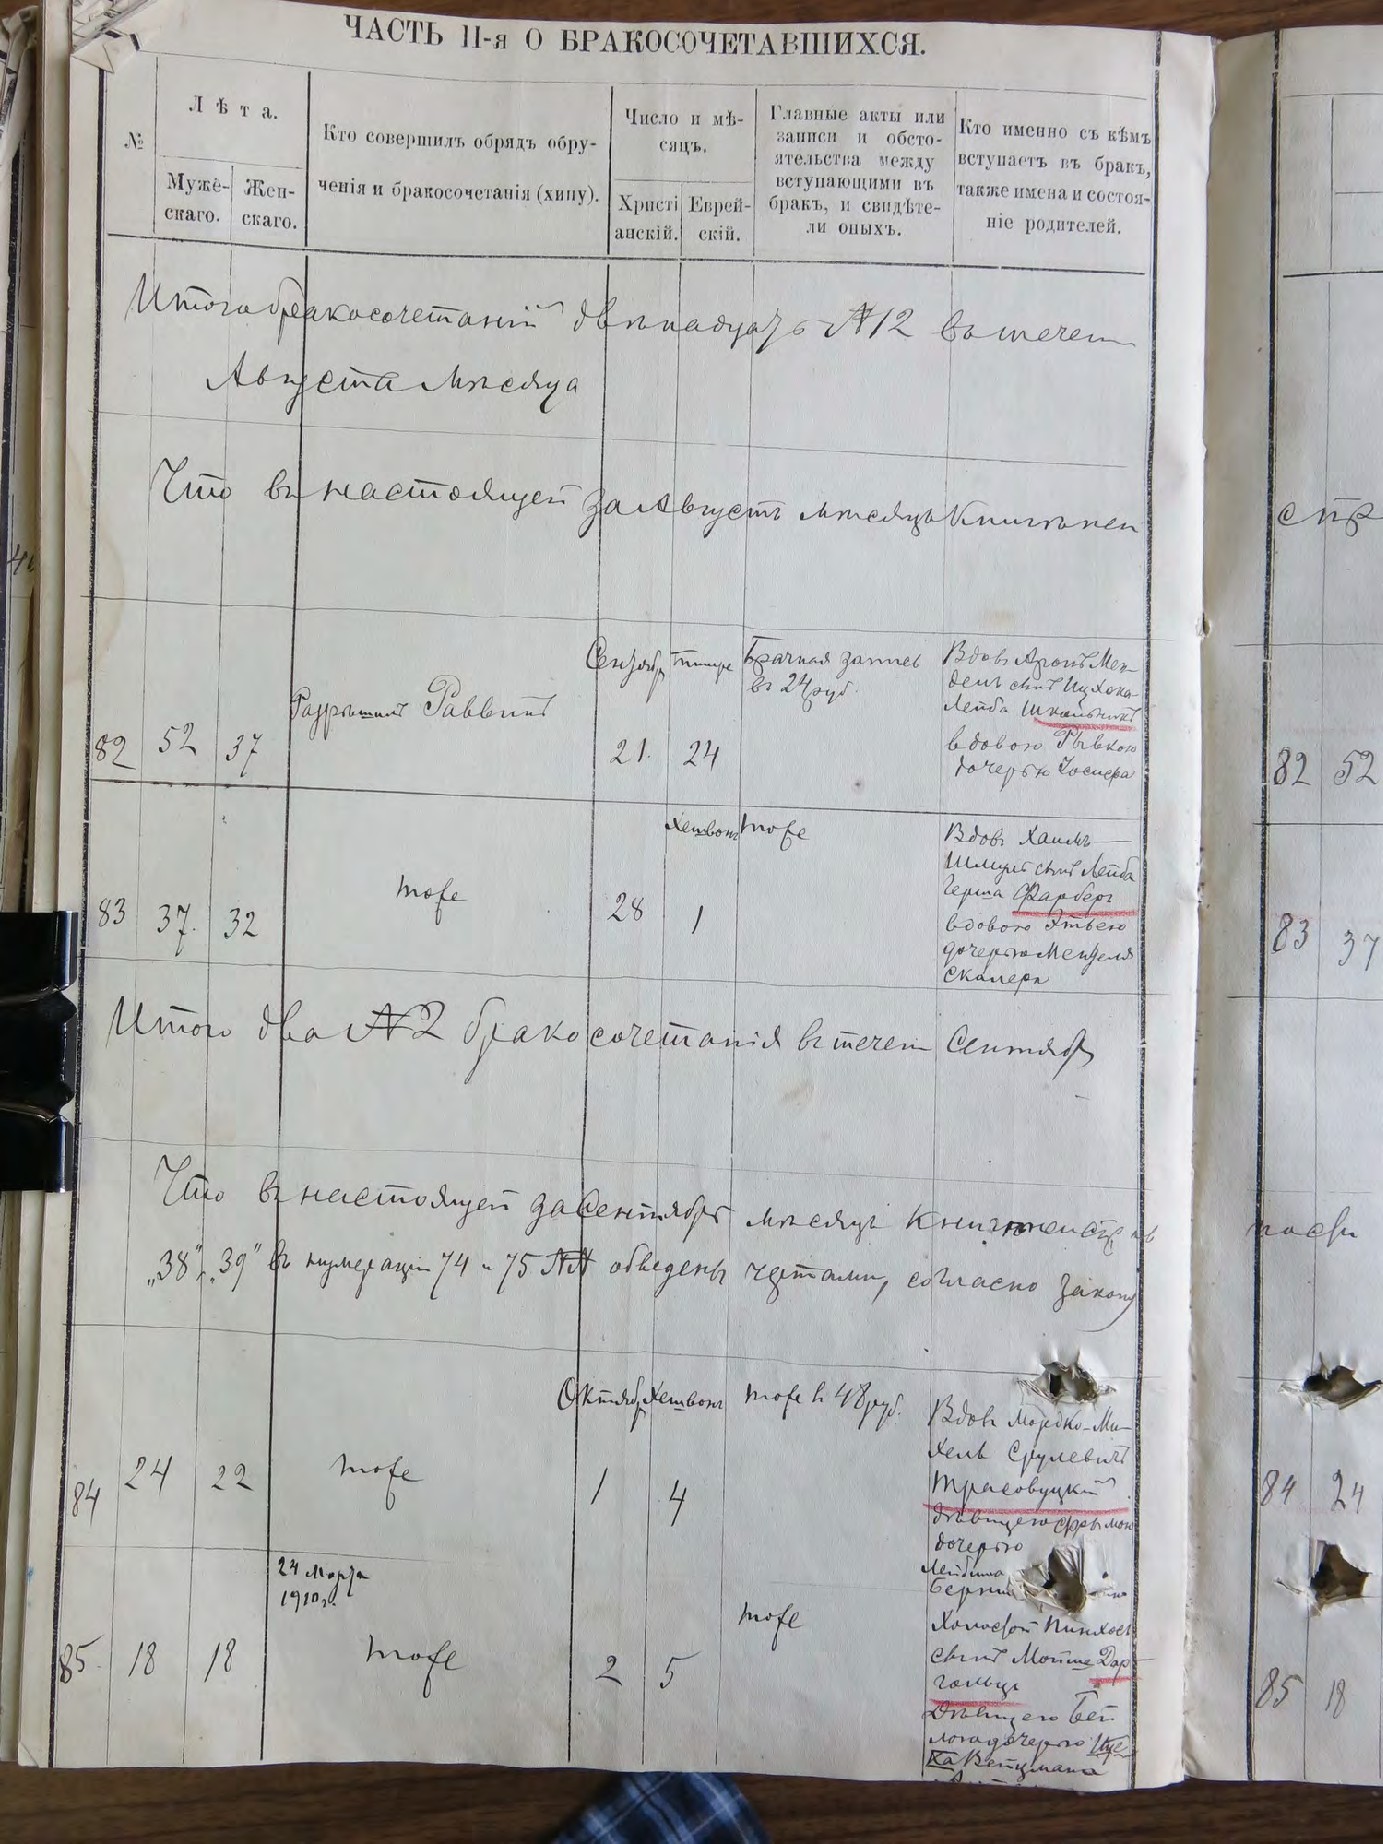 ЧАСТЬ II-я О БРАКОСОЧЕТАВШИХСЯ.
№
Лѣта.
Мужескаго.
Женскаго.
Кто совершилъ обрядъ обру-
ченія и бракосочетанія (хипу).
Число и мѣ-
сяцъ.
Христі
анскій.
Еврей-
скій.
Главные акты или
записи и обсто-
ятельства между
вступающими въ
бракъ, и свидѣте-
ли оныхъ.
Кто именно съ кѣмъ
вступаетъ въ бракъ,
также имена и состоя-
ніе родителей.
Итого бракосочетаній двѣнадцать №12 въ течен
Августа мѣсяца
Что въ настоящей за Августъ мѣсяцъ Книгѣ
82
52
37
Раввинъ
Сентябр
21.
Тишре
24
Брачная запись
въ 24 руб.
Вдовъ Аронъ Мен-
дель сынъ Ицхока
Лейба Школьникъ
вдовою Рывкою
дочерью
83
37.
32
тоже
28
Хешвонъ
1
тоже
Вдовъ Хаимъ
Шмуль сынъ Лейба
Герша Фарберг
вдовою Этьею
дочерью Менделя
Скалера
Итого два №2 бракосочетанія въ течен Сентябр
Что въ настоящей за Сентябрь мѣсяцъ Книгѣ
„38" „39" въ нумерации 74 и 75 №№ обведены чертами, согласно закону
84
24
22
тоже
Октябр
1
Хешвонъ
4
тоже въ 48 руб.
Вдовъ Мордко-Ми-
хель Срулевичъ
Трасовуцкій
дѣвицею Фрымою
дочерью
Лейбиша
85.
18
18
24 Марта
1910 г.
тоже
2
5
тоже
Холостой Пинхось
сынъ Мойше Дар-
гольцъ
Дѣвицею Бей
лого дочерью Ице-
ка Вейцмана
82
52
83
37
84
24
85
18